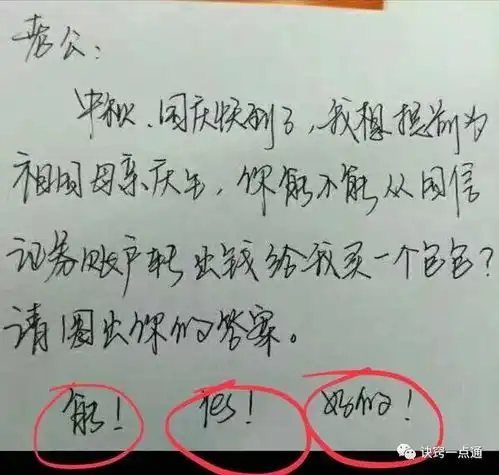 老公:
中秋、国庆快到了,我想提前为
祖国母亲庆生,你能不能从国信
证券账户转出钱给我买一个包包?
请圈出你的答案。
能! yes! 好的!
诀窍一点通